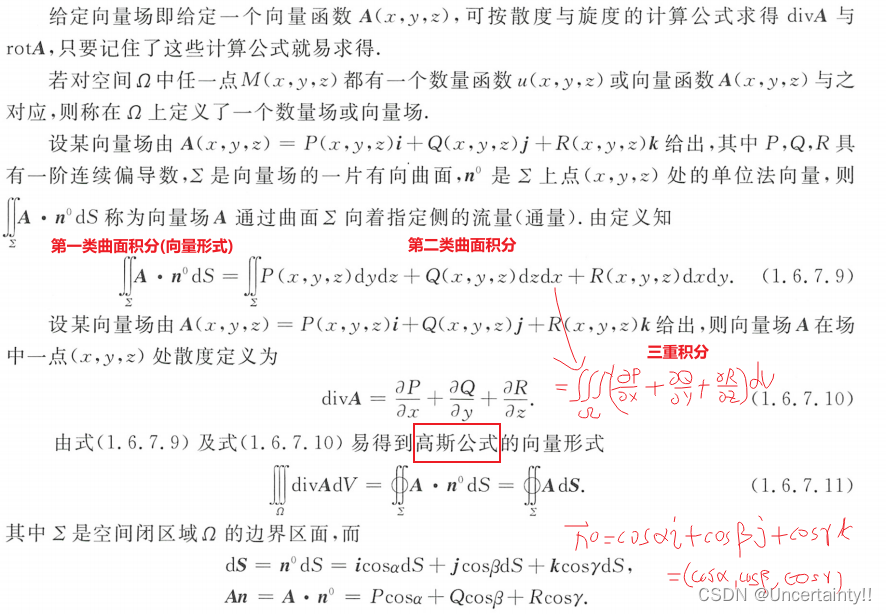 给定向量场即给定一个向量函数 A(x,y,z),可按散度与旋度的计算公式求得 divA 与
rotA,只要记住了这些计算公式就易求得.
若对空间Ω中任一点M(x,y,z)都有一个数量函数u(x,y,z)或向量函数A(x,y,z)与之
对应,则称在 Ω 上定义了一个数量场或向量场.
设某向量场由 A(x,y,z) = P(x,y,z)i+Q(x,y,z)j+R(x,y,z)k 给出,其中 P,Q,R 具
有一阶连续偏导数,Σ 是向量场的一片有向曲面,n⁰ 是 Σ 上点(x,y,z) 处的单位法向量,则
∬_Σ A · n⁰dS 称为向量场 A 通过曲面Σ 向着指定侧的流量(通量).由定义知
第一类曲面积分(向量形式) 第二类曲面积分
∬_Σ A · n⁰dS = ∬_Σ P(x,y,z)dydz + Q(x,y,z)dzdx + R(x,y,z)dxdy. (1.6.7.9)
设某向量场由 A(x,y,z) = P(x,y,z)i+Q(x,y,z)j+R(x,y,z)k 给出,则向量场 A 在场
中一点(x,y,z) 处散度定义为
三重积分
divA = ∂P/∂x + ∂Q/∂y + ∂R/∂z. (1.6.7.10)
= ∭_Ω (∂P/∂x + ∂Q/∂y + ∂R/∂z) dV
由式(1.6.7.9) 及式(1.6.7.10) 易得到高斯公式的向量形式
∭_Ω divAdV = ∯_Σ A · n⁰dS = ∯_Σ AdS. (1.6.7.11)
其中 Σ 是空间闭区域 Ω 的边界区面,而
n⁰=cosαi+cosβj+cosγk
dS = n⁰dS = icosαdS + jcosβdS + kcosγdS,
=(cosα,cosβ,cosγ)
An = A · n⁰ = Pcosα + Qcosβ + Rcosγ.
CSDN @Uncertainty!!